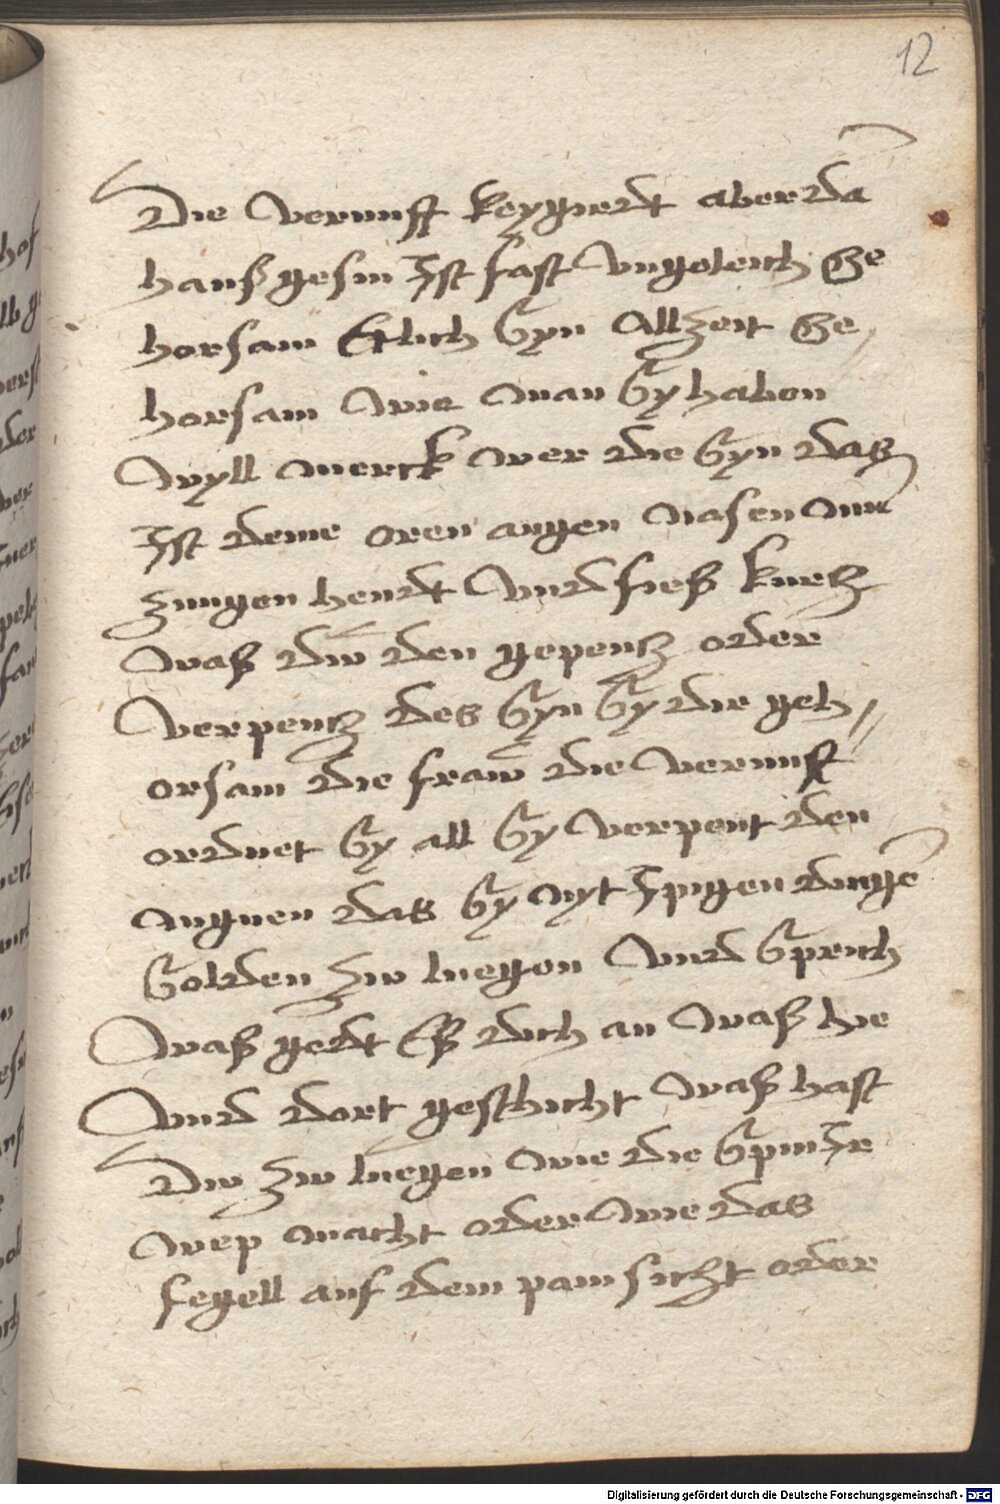 12
Die vernunfft keyguerdt aber da
hauß gesin Ist fast ungeleich Ge
horsam Etlich Syn Allzeit Ge
horsam wie man Sy haben
wyll merck wer die Syn das
Ist deine oren augen nasen
zungen hendt vnnd fieß kurtz
waß dw den gepeutz oder
verpeutz des Syn Sy dir geh
orsam die fraw die vernunfft
ordnet Sy all Sy verpeut den
augnen das Sy nyt Ipigen dinge
Solden zw luegen vnnd Sprich
waß gedt Eß dich an waß hie
vnnd dort geschicht waß hast
Dw zw luegen wie die Spin Ir
wep macht oder wie das
fegell auf dem pam sitzt oder
Digitalisierung gefördert durch die Deutsche Forschungsgemeinschaft - DFG